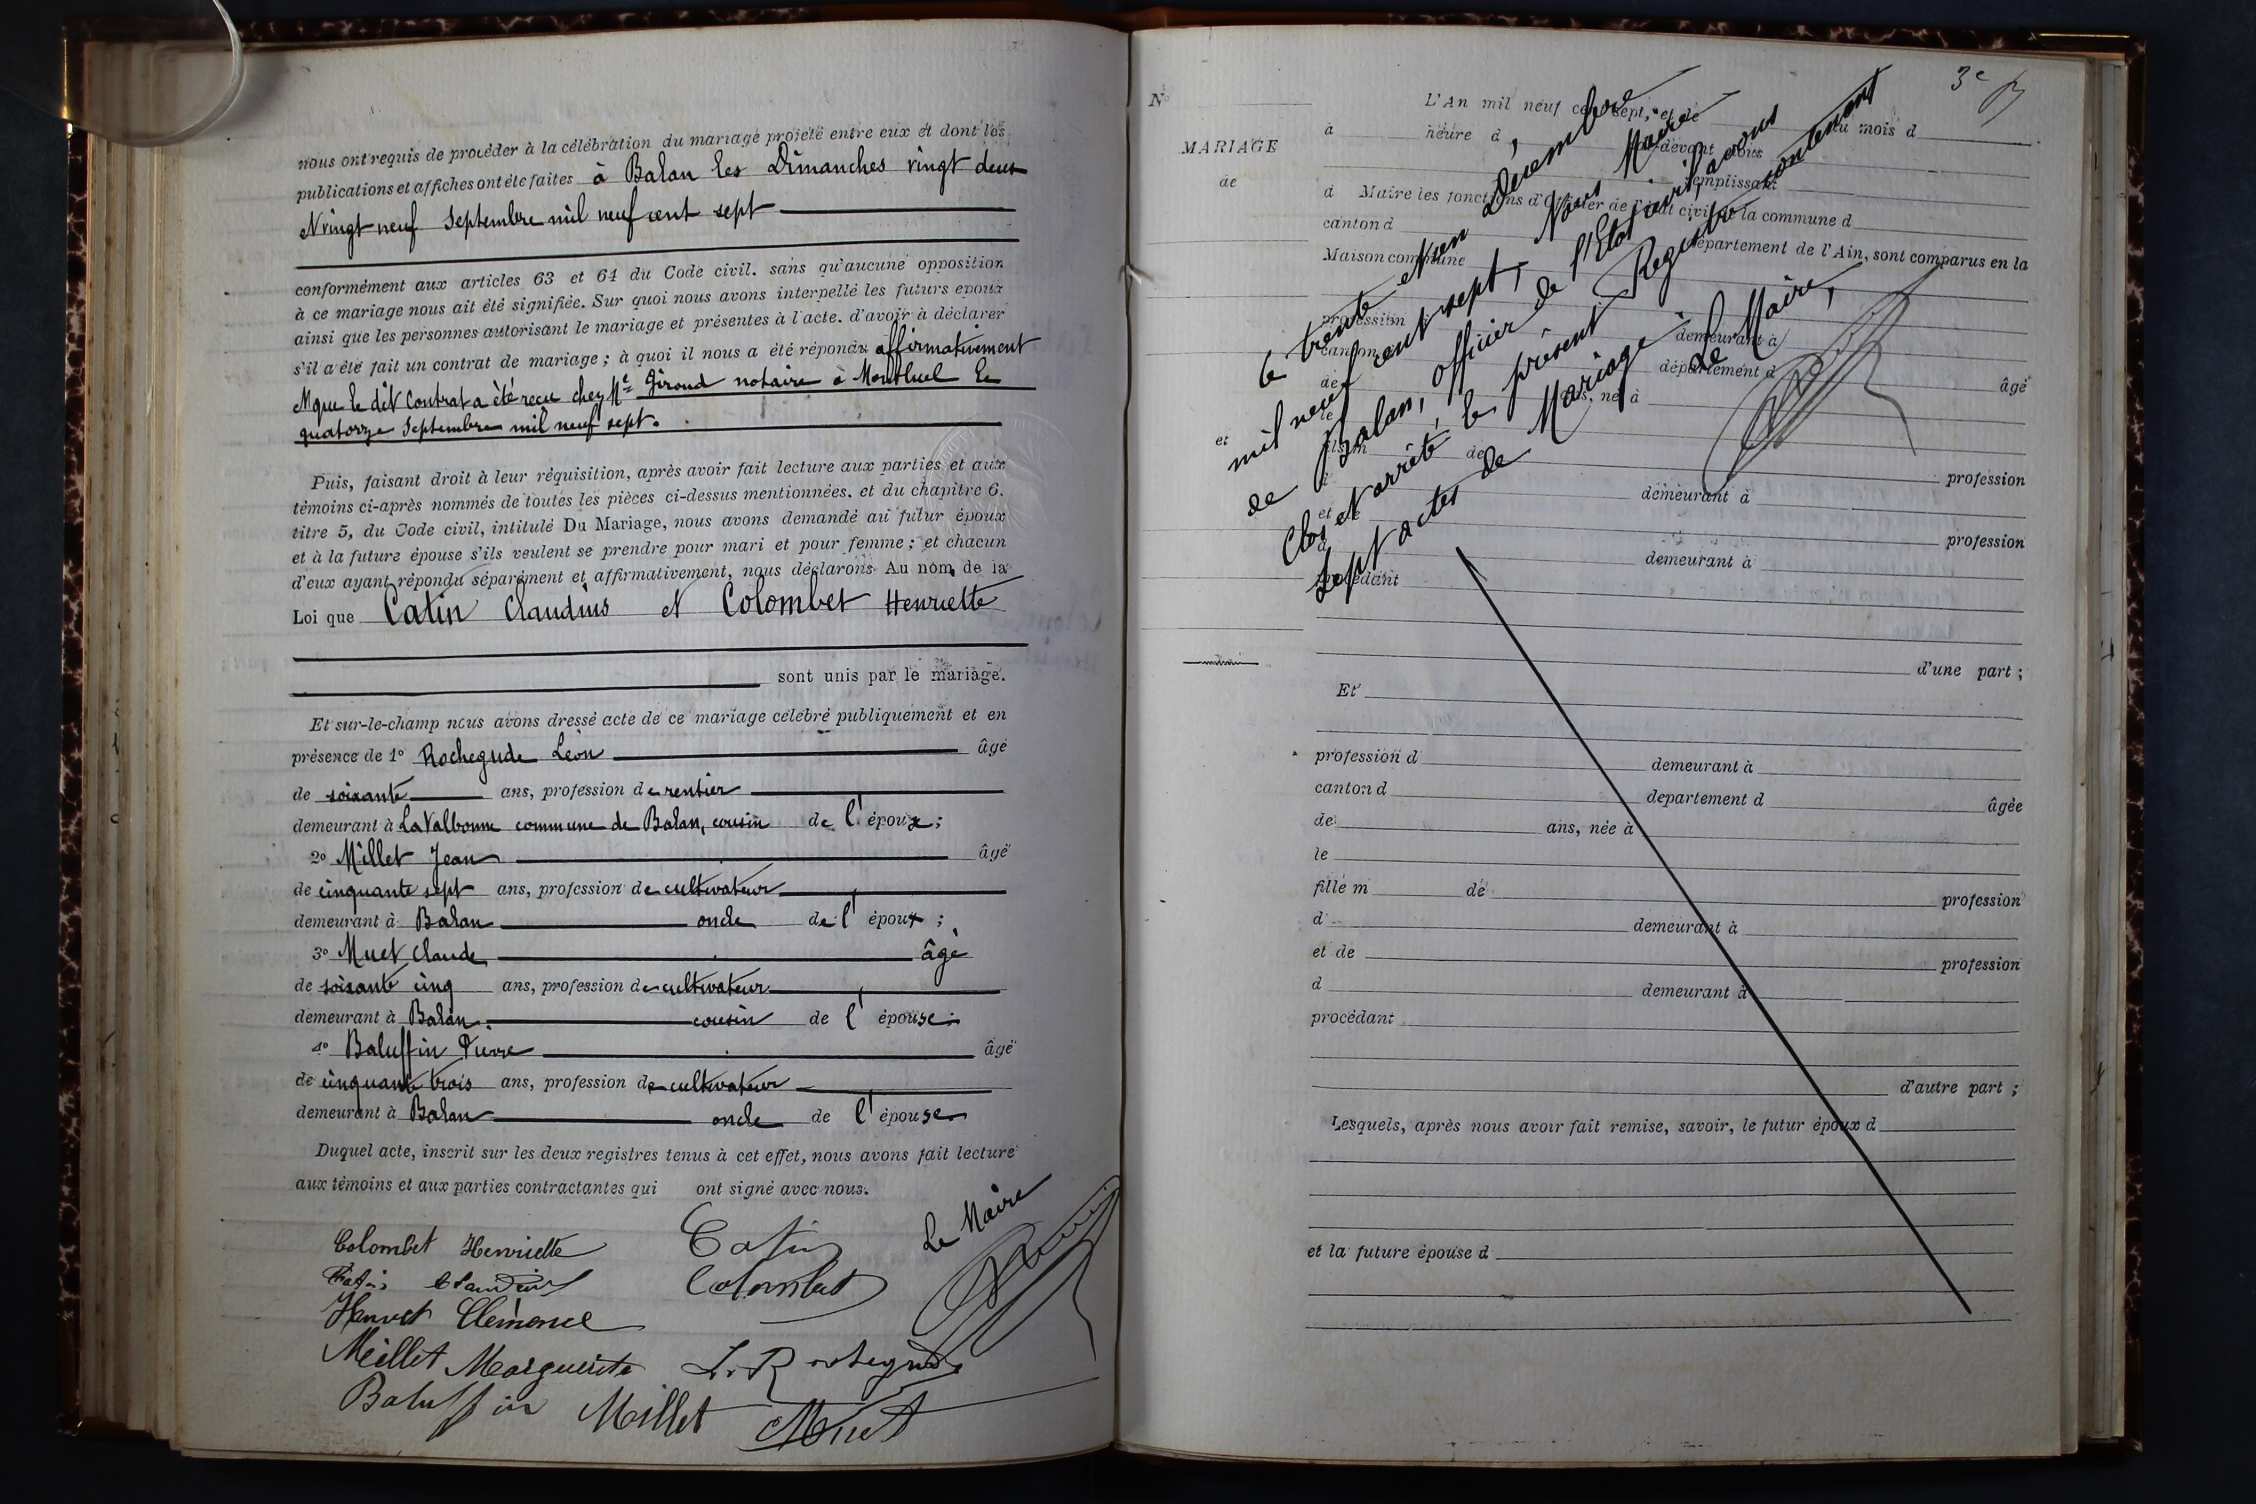 nous ont requis de procéder à la célébration du mariage projeté entre eux et dont les
publications et affiches ont été faites à Balan les Dimanches vingt deux
et vingt neuf Septembre mil neuf cent sept
conformément aux articles 63 et 64 du Code civil. sans qu'aucune opposition
à ce mariage nous ait été signifiée. Sur quoi nous avons interpellé les futurs époux
ainsi que les personnes autorisant le mariage et présentes à l'acte. d'avoir à déclarer
s'il a été fait un contrat de mariage ; à quoi il nous a été répondu affirmativement
et que le dit contrat a été reçu chez Me Giroud notaire à Montluel le
quatorze Septembre mil neuf sept.
Puis, faisant droit à leur réquisition, après avoir fait lecture aux parties et aux
témoins ci-après nommés de toutes les pièces ci-dessus mentionnées. et du chapitre 6.
titre 5, du Code civil, intitulé Du Mariage, nous avons demandé au futur époux
et à la future épouse s'ils veulent se prendre pour mari et pour femme ; et chacun
d'eux ayant répondu séparément et affirmativement, nous déclarons Au nom de la
Loi que Catin Claudius et Colombet Henriette
sont unis par le mariage.
Et sur-le-champ nous avons dressé acte de ce mariage célébré publiquement et en
présence de 1º Rochegude Léon âgé
de soixante ans, profession de rentier
demeurant à La Valbonne commune de Balan, cousin de l' époux ;
2º Millet Jean âgé
de cinquante sept ans, profession de cultivateur
demeurant à Balan oncle de l' époux ;
3º Muet Claude âgé
de soixante cinq ans, profession de cultivateur
demeurant à Balan cousin de l' épouse
4º Baluffin Pierre âgé
de cinquante trois ans, profession de cultivateur
demeurant à Balan oncle de l' épouse
Duquel acte, inscrit sur les deux registres tenus à cet effet, nous avons fait lecture
aux témoins et aux parties contractantes qui ont signé avec nous.
Colombet Henriette Catin Le Maire
Catin Claudius Colombet
Clémence
Millet Marguerite L. Rochegude
Baluffin Millet Muet
3e
Nº
MARIAGE
de
et
L'An mil neuf cent sept, et le du mois d
à heure d , devant nous
remplissant
d Maire les fonctions d'Officier de l'état civil de la commune d
canton d département de l'Ain, sont comparus en la
Maison commune
profession demeurant à
canton département d âgé
de ans, né à
le
fils m de profession
d demeurant à
et de profession
d demeurant à
procédant
d'une part ;
Le trente et un Décembre
mil neuf cent sept, Nous Maire
de Balan, officier de l'Etat civil, avons
Clos et arrêté le présent Registre contenant
Sept actes de Mariage
Le Maire,
Et
profession d demeurant à
canton d département d âgée
de ans, née à
le
fille m de profession
d demeurant à
et de profession
d demeurant à
procédant
d'autre part ;
Lesquels, après nous avoir fait remise, savoir, le futur époux d
et la future épouse d